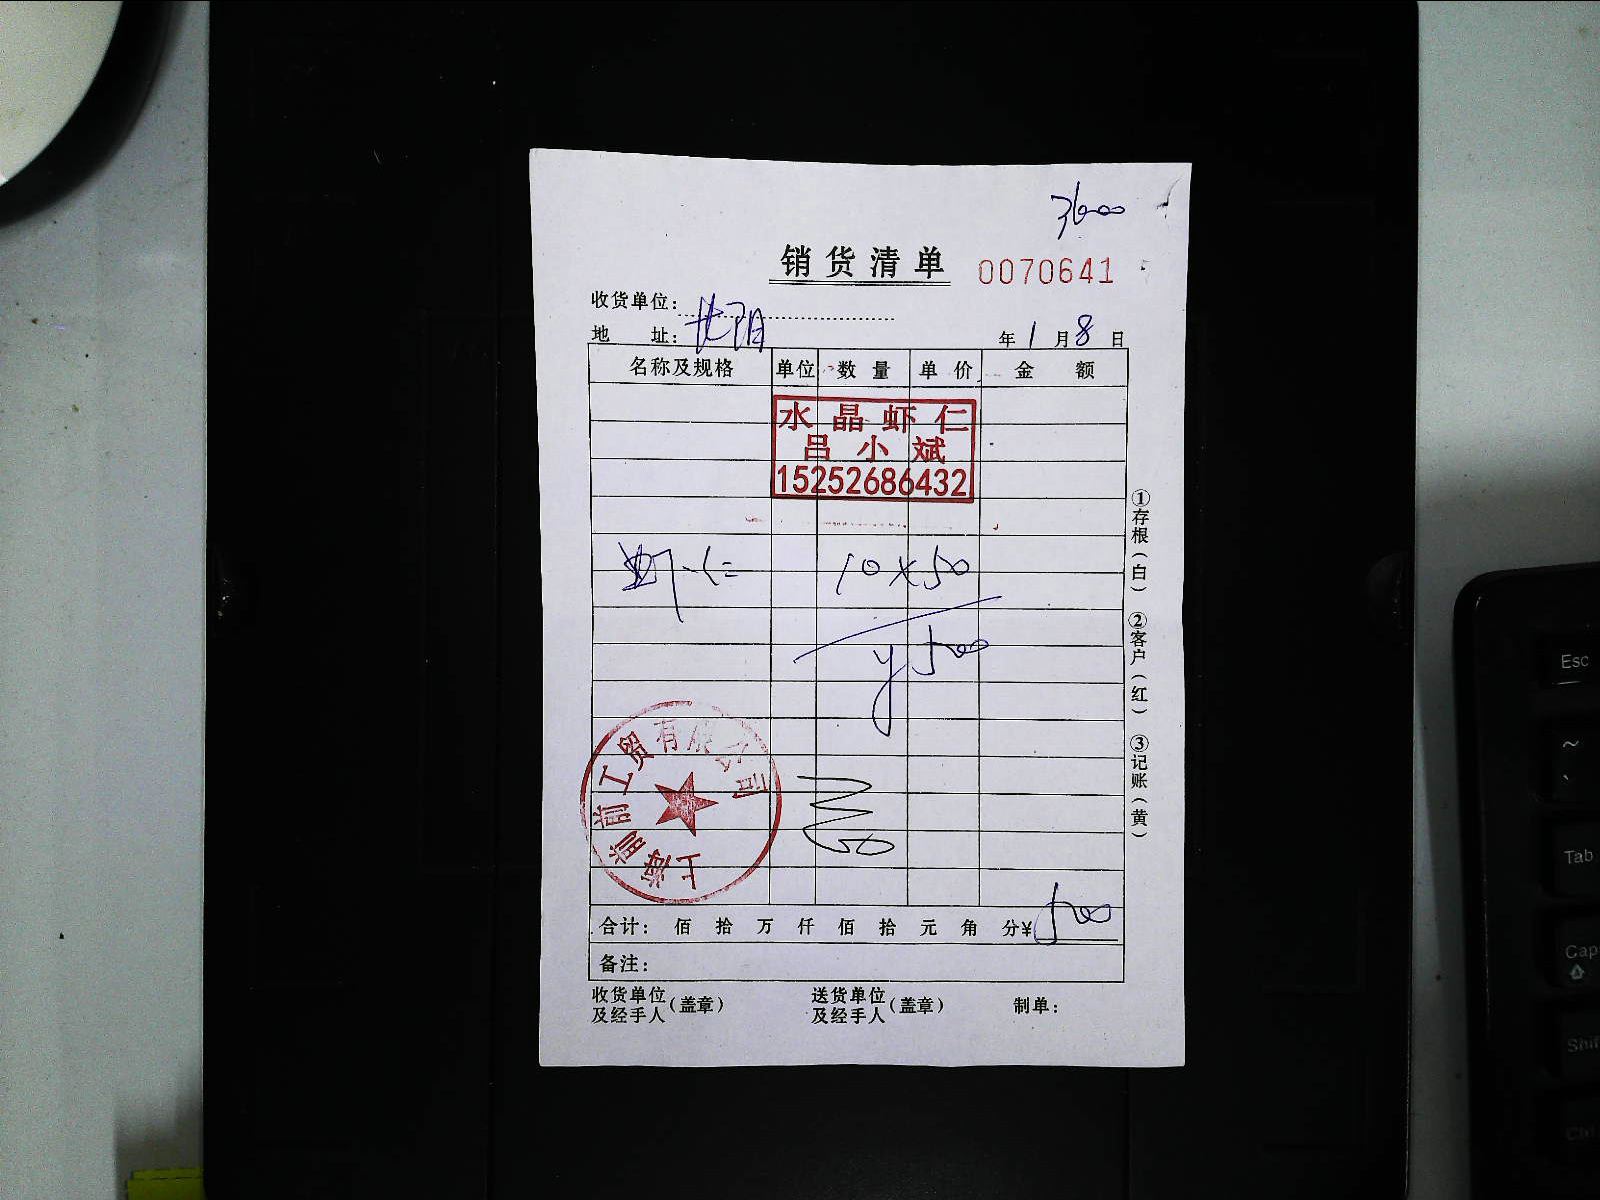 销货清单 0070641
收货单位：
地 址： 沈阳
年 1 月 8 日
名称及规格 单位 数量 单价 金额
水晶虾仁
吕小斌
15252686432
虾仁 10×50
¥500
上海前前工贸有限公司
合计： 佰 拾 万 仟 佰 拾 元 角 分¥ 500
备注：
收货单位及经手人（盖章） 送货单位及经手人（盖章） 制单：
①存根（白） ②客户（红） ③记账（黄）
Esc
~
`
Tab
Cap
Shif